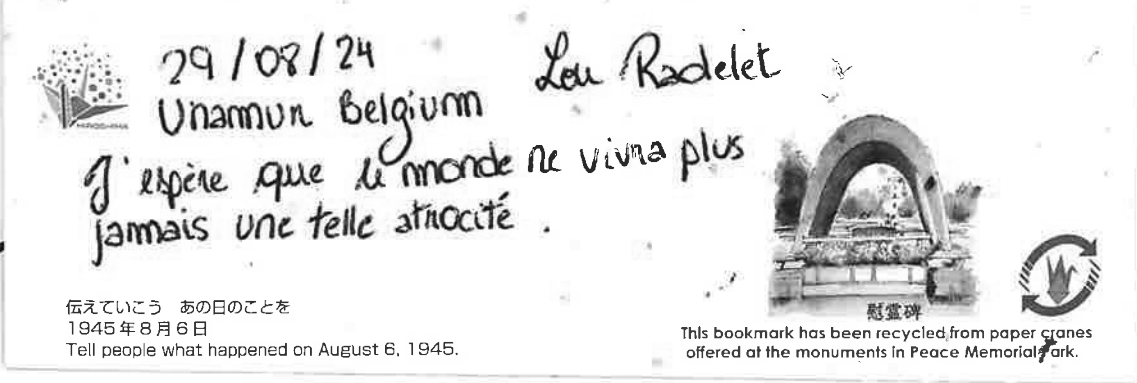 29/08/24
Lou Radelet
Unamur Belgium
J'espère que le monde ne vivra plus
jamais une telle atrocité.
HIROSHIMA
伝えていこう あの日のことを
1945年8月6日
Tell people what happened on August 6, 1945.
慰霊碑
This bookmark has been recycled from paper cranes
offered at the monuments in Peace Memorial Park.